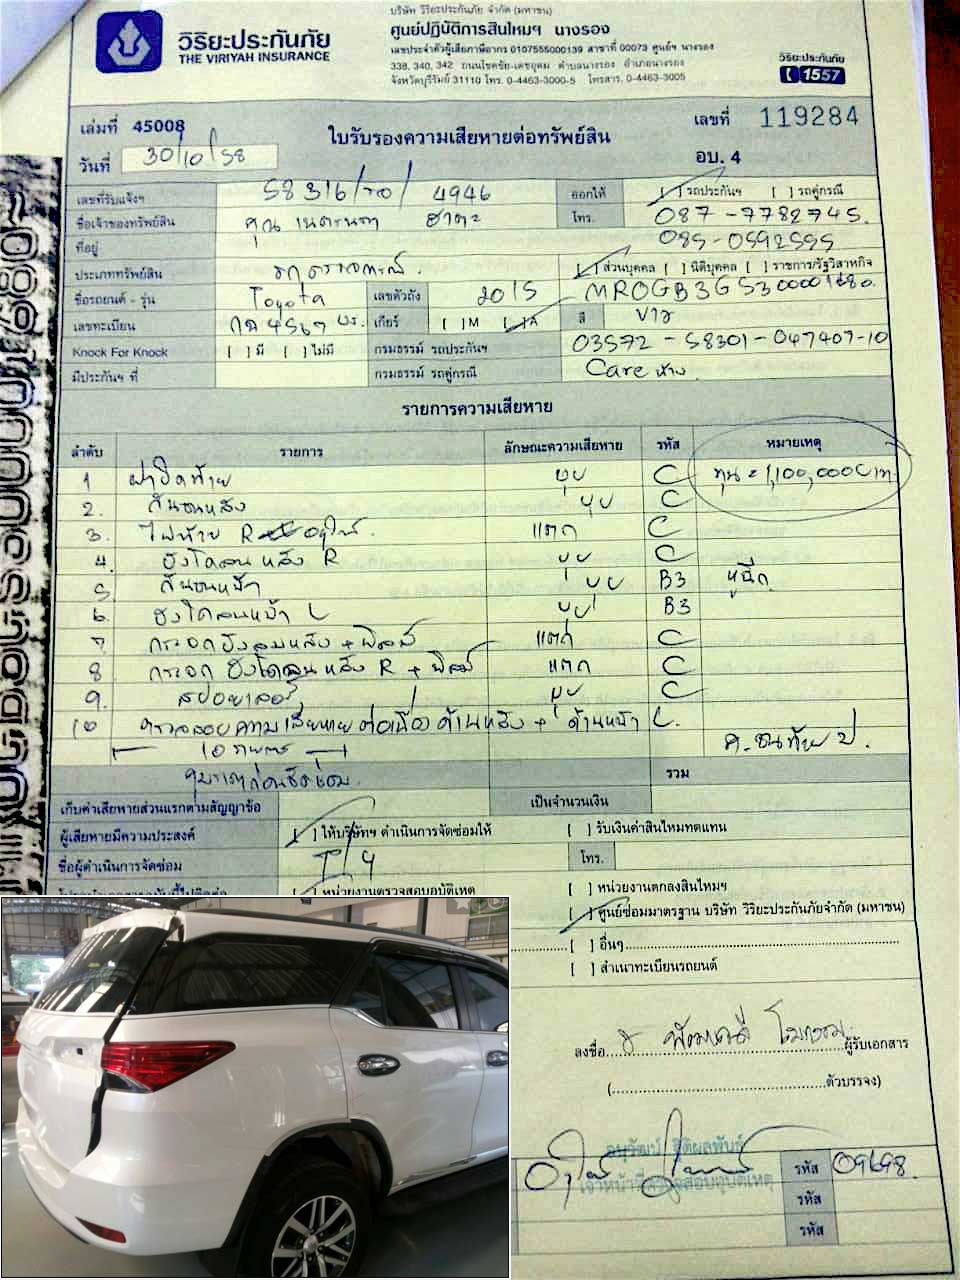 บริษัท วิริยะประกันภัย จำกัด (มหาชน)
ศูนย์ปฏิบัติการสินไหมฯ นางรอง
เลขประจำตัวผู้เสียภาษีอากร 0107555000139 สาขาที่ 00073 ศูนย์ฯ นางรอง
338, 340, 342 ถนนโชคชัย-เดชอุดม ตำบลนางรอง อำเภอนางรอง
จังหวัดบุรีรัมย์ 31110 โทร. 0-4463-3000-5 โทรสาร. 0-4463-3005
วิริยะประกันภัย
THE VIRIYAH INSURANCE
วิริยะประกันภัย
1557
เล่มที่ 45008
ใบรับรองความเสียหายต่อทรัพย์สิน
เลขที่ 119284
วันที่ 30/10/58
อบ. 4
เลขที่รับแจ้งฯ 58316/40/4946 ออกให้ [ ] รถประกันฯ [ ] รถคู่กรณี
ชื่อเจ้าของทรัพย์สิน คุณ โทร. 087-7782745.
ที่อยู่ 085-0592555
ประเภททรัพย์สิน [ ] ส่วนบุคคล [ ] นิติบุคคล [ ] ราชการ/รัฐวิสาหกิจ
ชื่อรถยนต์ - รุ่น Toyota เลขตัวถัง 2015 MROGB3GS300001680.
เลขทะเบียน กด 4567 บร. เกียร์ [ ] M [ ] A สี ขาว
Knock For Knock [ ] มี [ ] ไม่มี กรมธรรม์ รถประกันฯ 03572-58301-047407-10
มีประกันฯ ที่ กรมธรรม์ รถคู่กรณี Care ห้าง
รายการความเสียหาย
ลำดับ รายการ ลักษณะความเสียหาย รหัส หมายเหตุ
1 ฝาปิดท้าย บุบ C ทุน = 1,100,000 บาท
2. กันชนหลัง บุบ C
3. ไฟท้าย R แตก C
4. บังโคลนหลัง R บุบ C
5. กันชนหน้า บุบ B3 หูฉีก
6. บังโคลนหน้า L บุบ B3
7. แตก C
8 กระจก บังโคลนหลัง R + ฟิล์ม แตก C
9. สปอยเลอร์ บุบ C
10 ตรวจสอบความเสียหายต่อเนื่องด้านหลัง + ด้านหน้า L.
10 รายการ
รวม
เก็บค่าเสียหายส่วนแรกตามสัญญาข้อ เป็นจำนวนเงิน
ผู้เสียหายมีความประสงค์ [ ] ให้บริษัทฯ ดำเนินการจัดซ่อมให้ [ ] รับเงินค่าสินไหมทดแทน
ชื่อผู้ดำเนินการจัดซ่อม โทร.
[ ] หน่วยงานตรวจสอบอุบัติเหตุ [ ] หน่วยงานตกลงสินไหมฯ
[ ] ศูนย์ซ่อมมาตรฐาน บริษัท วิริยะประกันภัยจำกัด (มหาชน)
[ ] อื่นๆ
[ ] สำเนาทะเบียนรถยนต์
ลงชื่อ ผู้รับเอกสาร
(ตัวบรรจง)
อนุวัฒน์ ฐิติผลพันธ์
เจ้าหน้าที่ตรวจสอบอุบัติเหตุ
รหัส 09698.
รหัส
รหัส